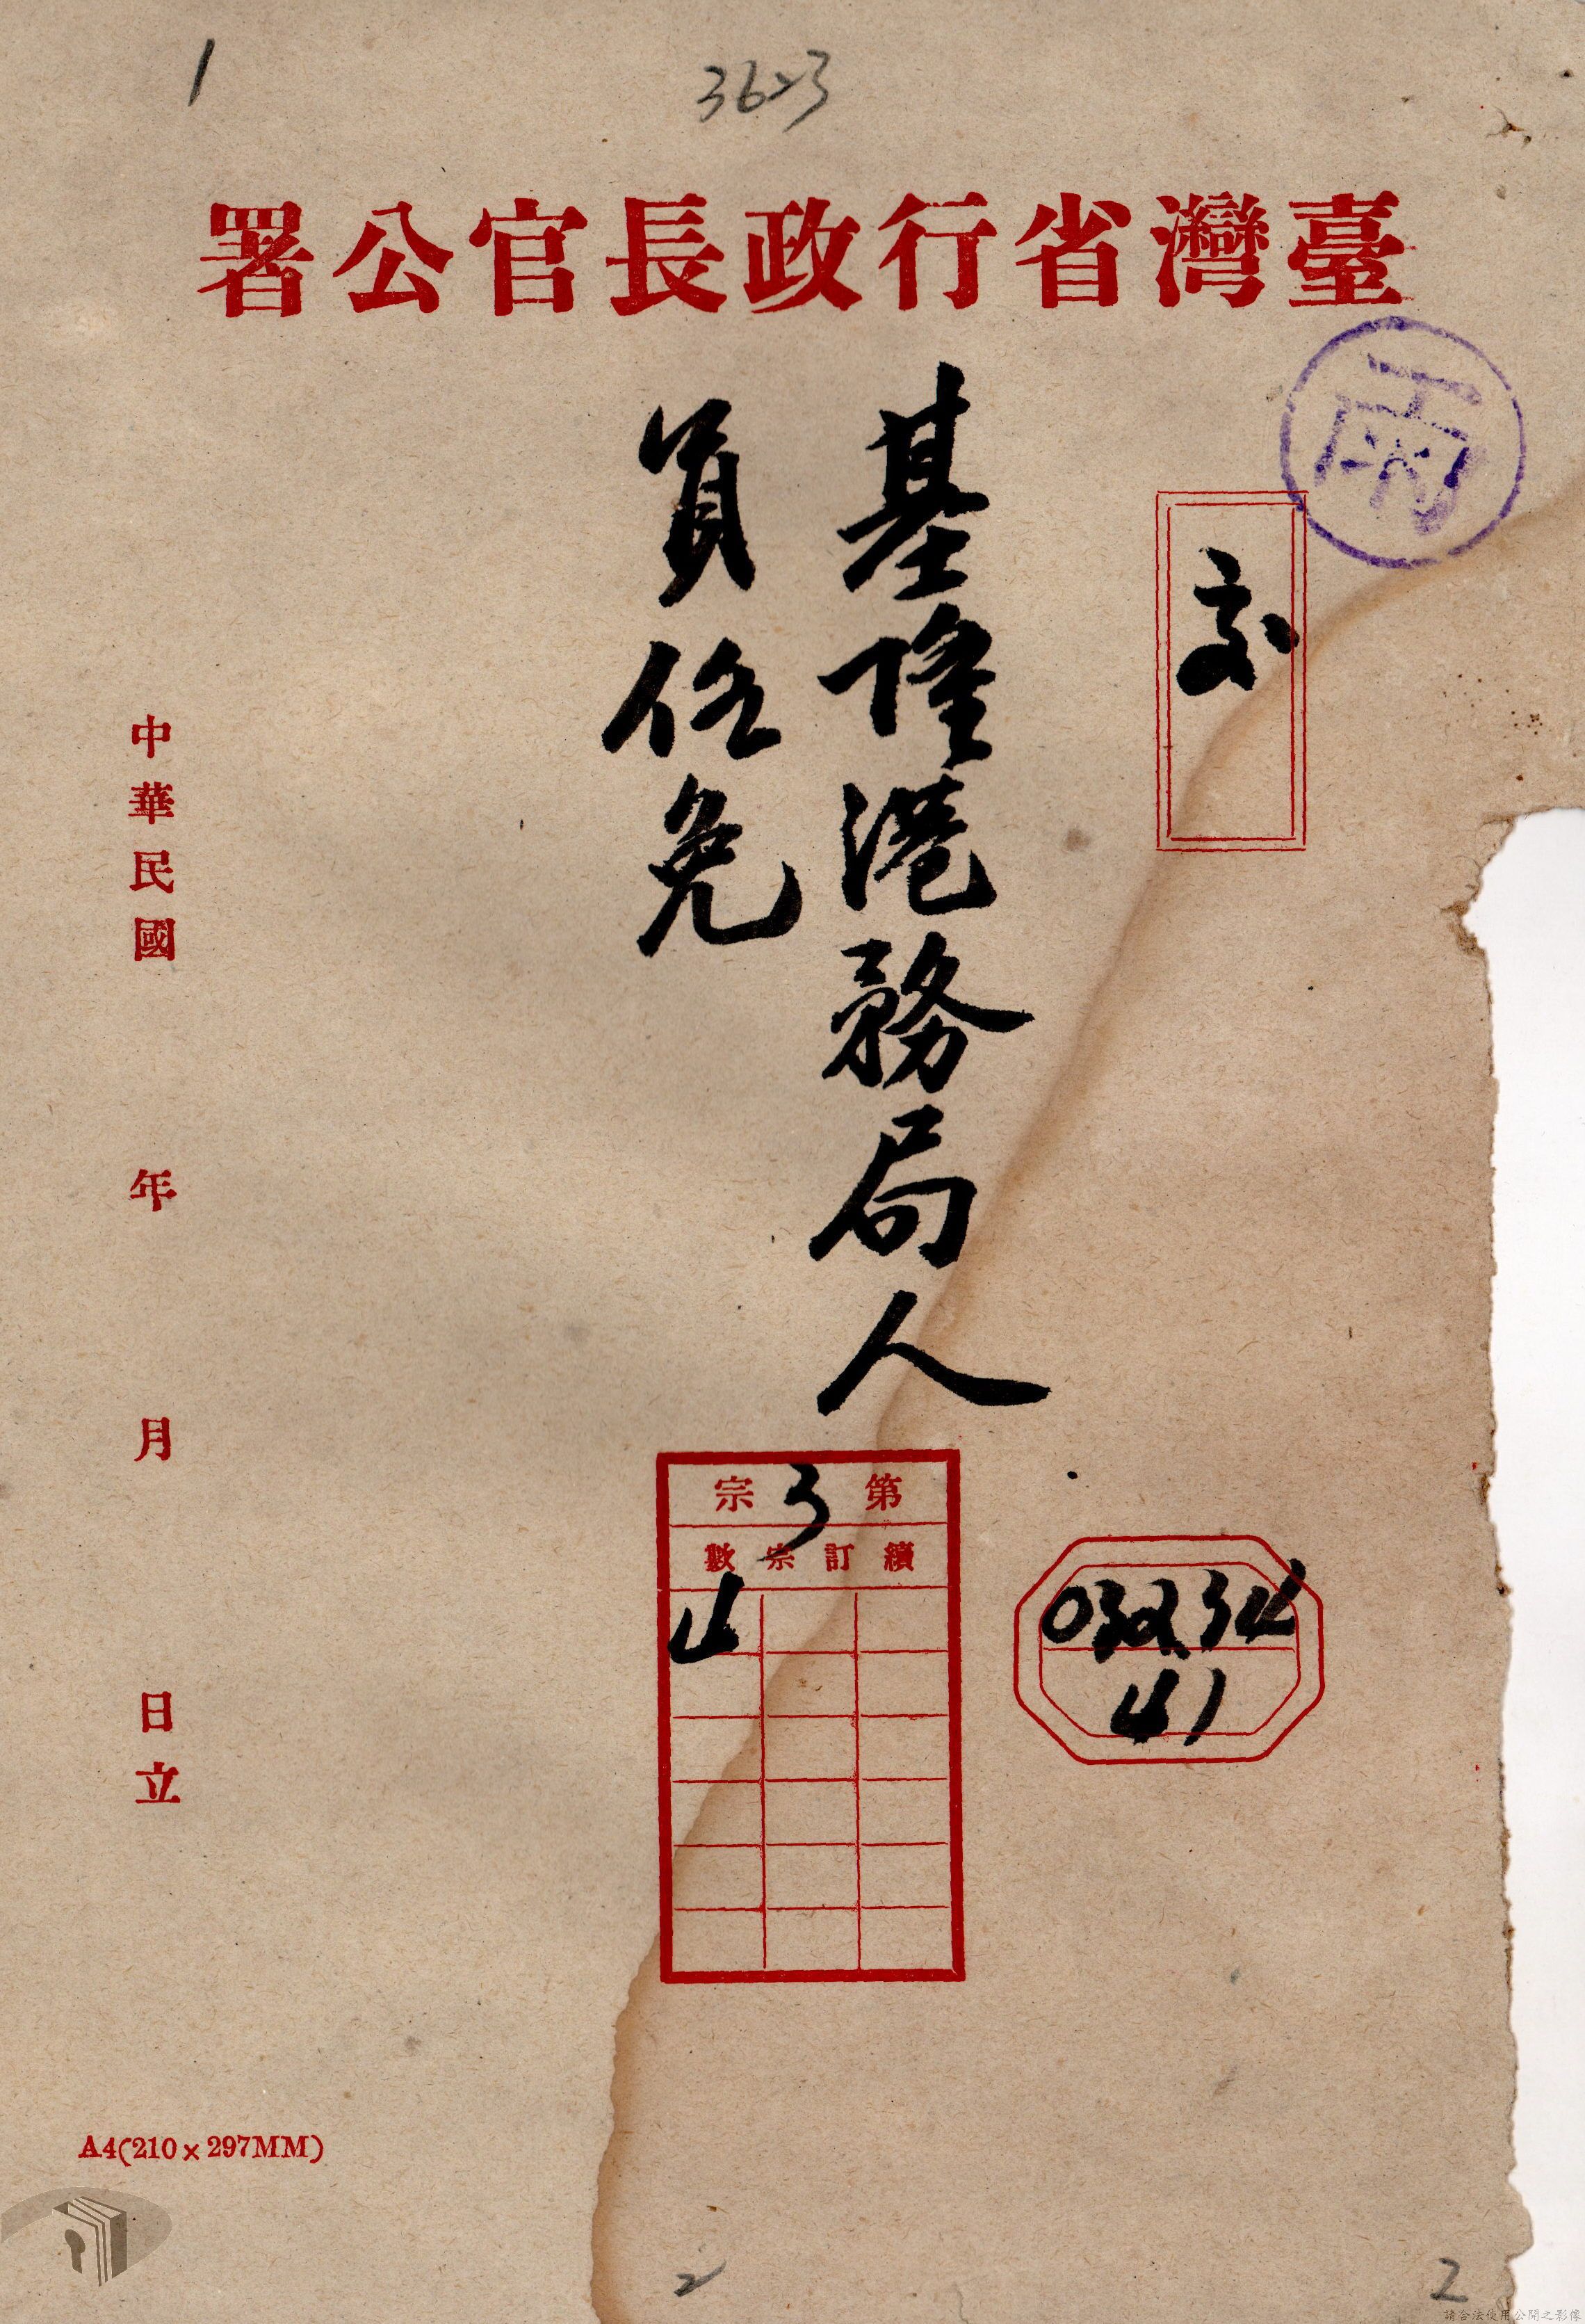 1
3623
臺灣省行政長官公署
交
基隆港務局人
員任免
第3宗
續訂宗數
4
032.34
41
中華民國 年 月 日立
A4(210×297MM)
2
2
請合法使用公開之影像